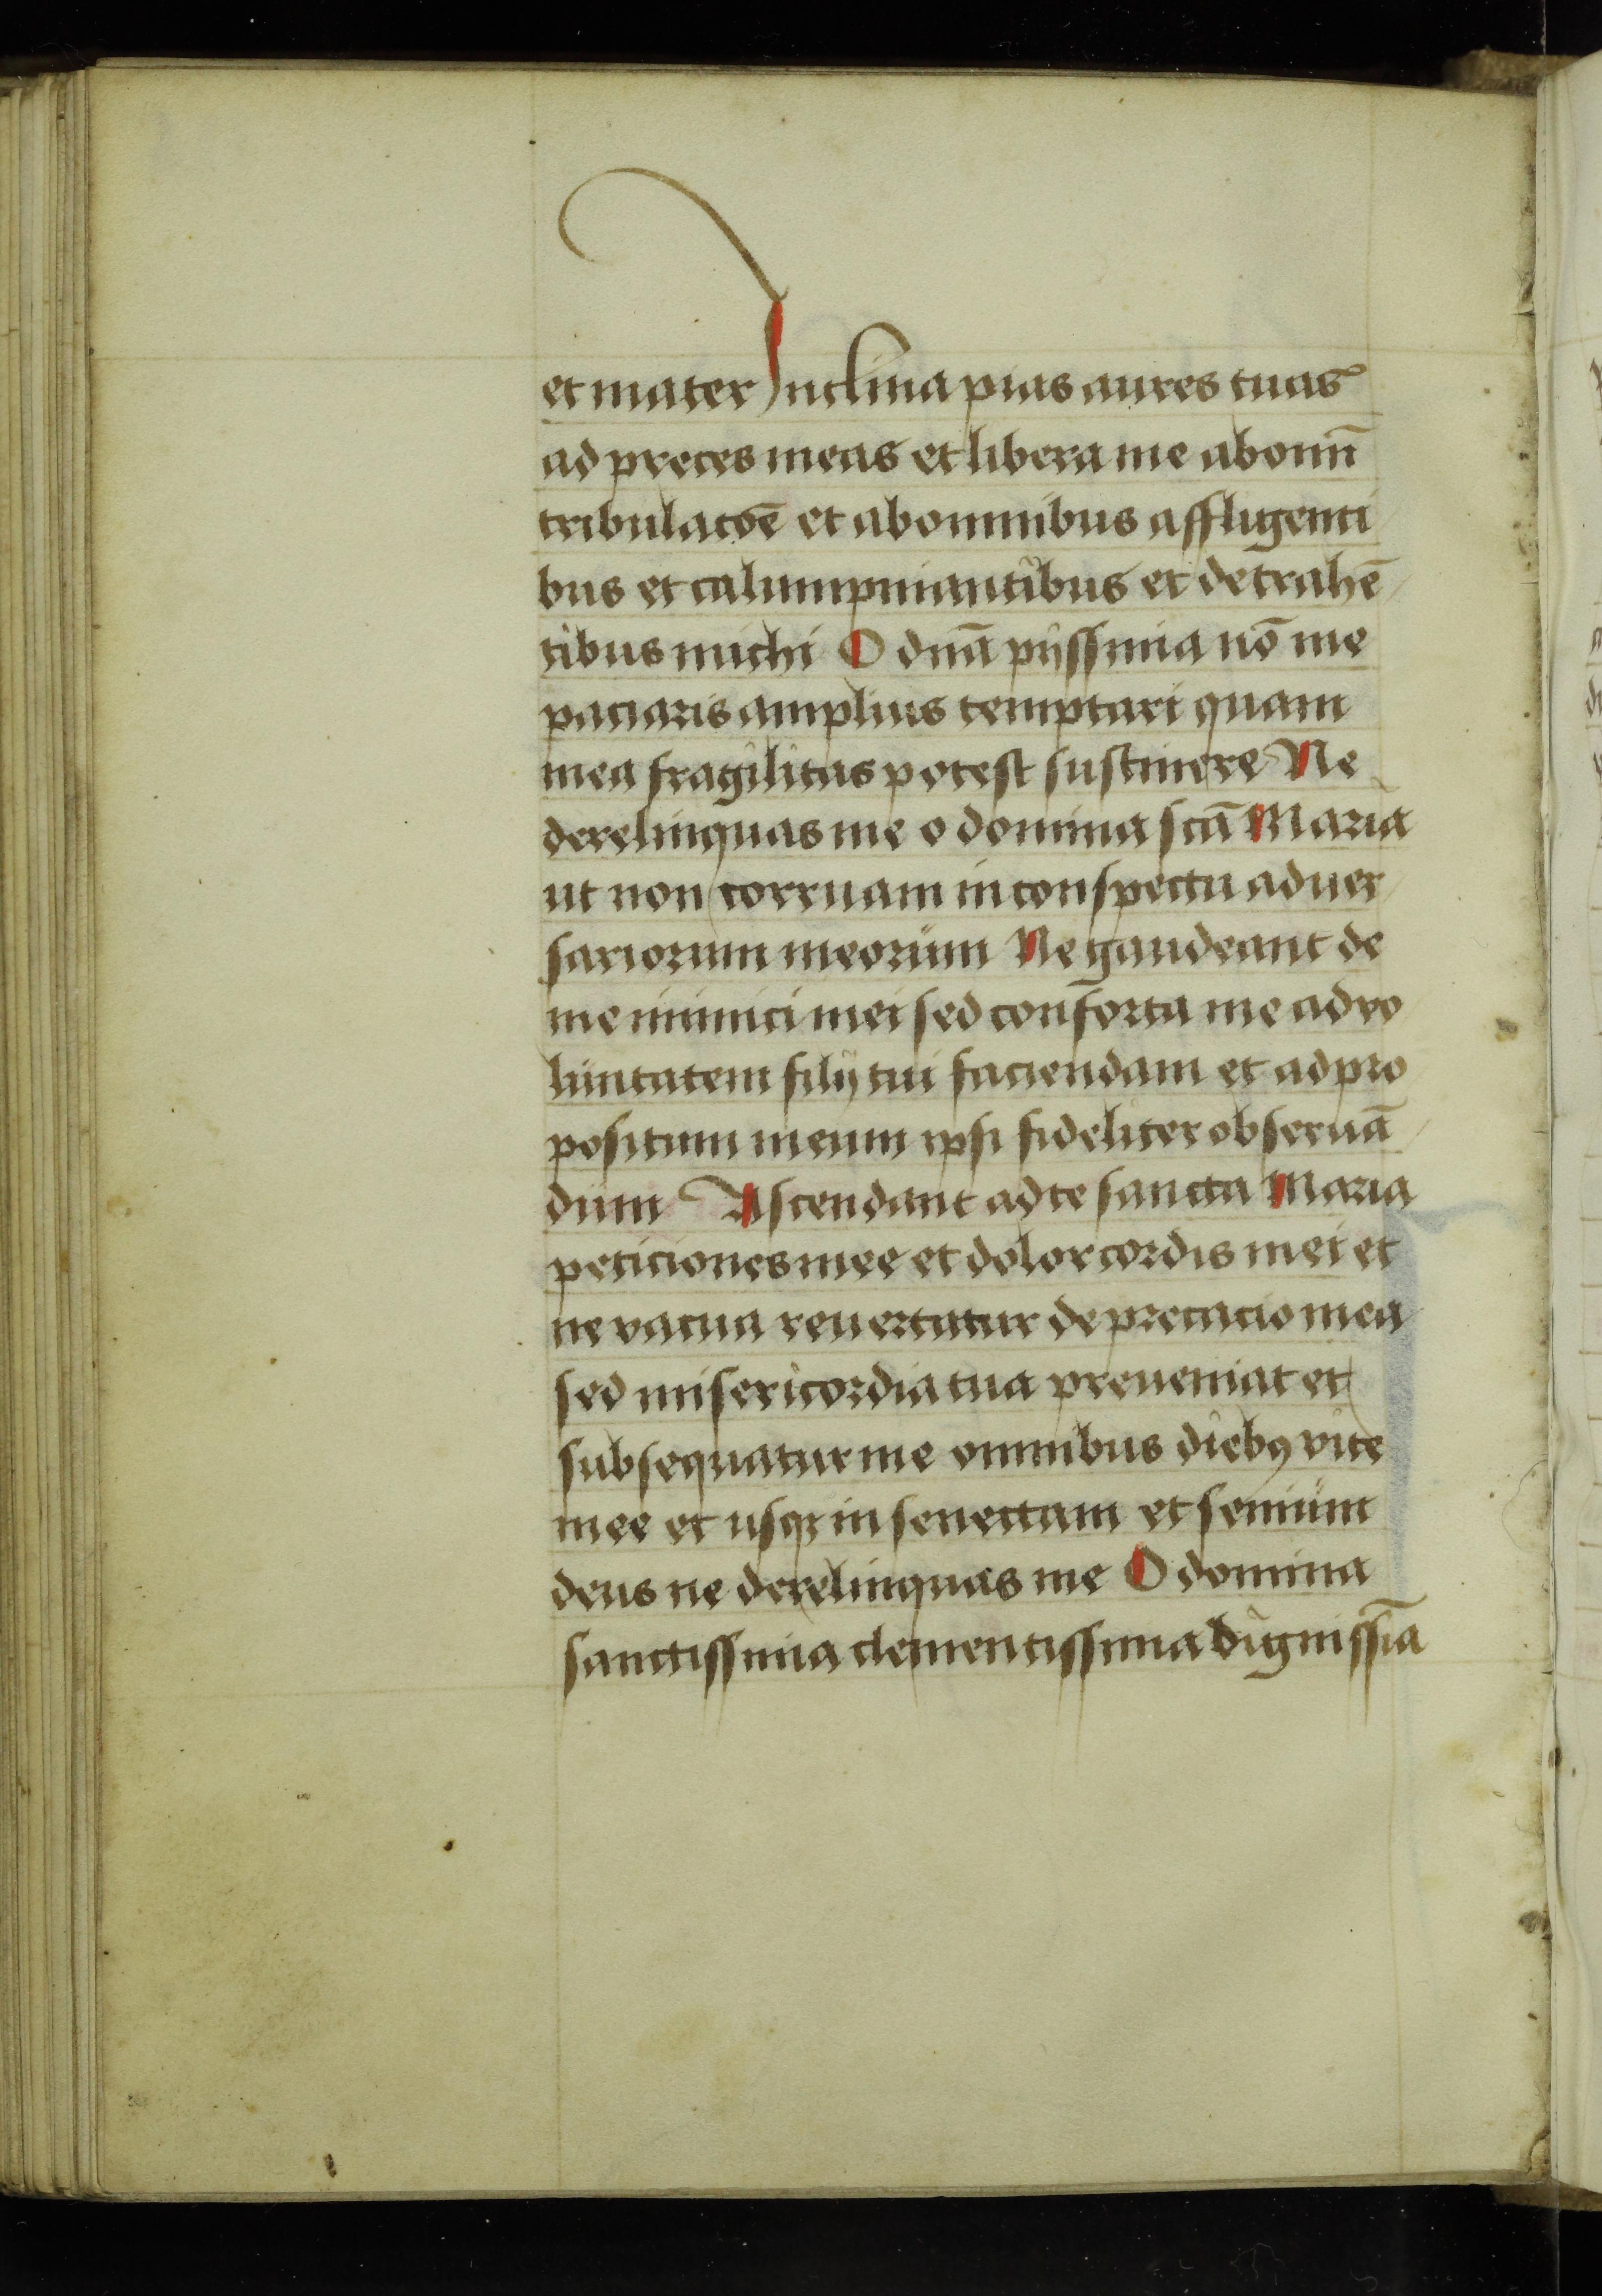 et mater Inclina pias aures tuas
ad preces meas et libera me ab omī
tribulacōe et ab omnibus affligenti
bus et calumpniantibus et detrahē
tibus michi O dnā pijssima nō me
paciaris amplius temptari quam
mea fragilitas potest sustinere Ne
derelinquas me o domina scā Maria
ut non corruam in conspectu aduer
sariorum meorum Ne gaudeant de
me inimici mei sed conforta me ad vo
luntatem filij tui faciendam et ad pro
positum meum ipsi fideliter obseruā
dum Ascendant ad te sancta Maria
peticiones mee et dolor cordis mei et
ne vacua reuertatur deprecacio mea
sed misericordia tua preueniat et
subsequatur me omnibus diebꝯ vite
mee et usqꝫ in senectam et senium
deus ne derelinquas me O domina
sanctissima clementissima dignissīa